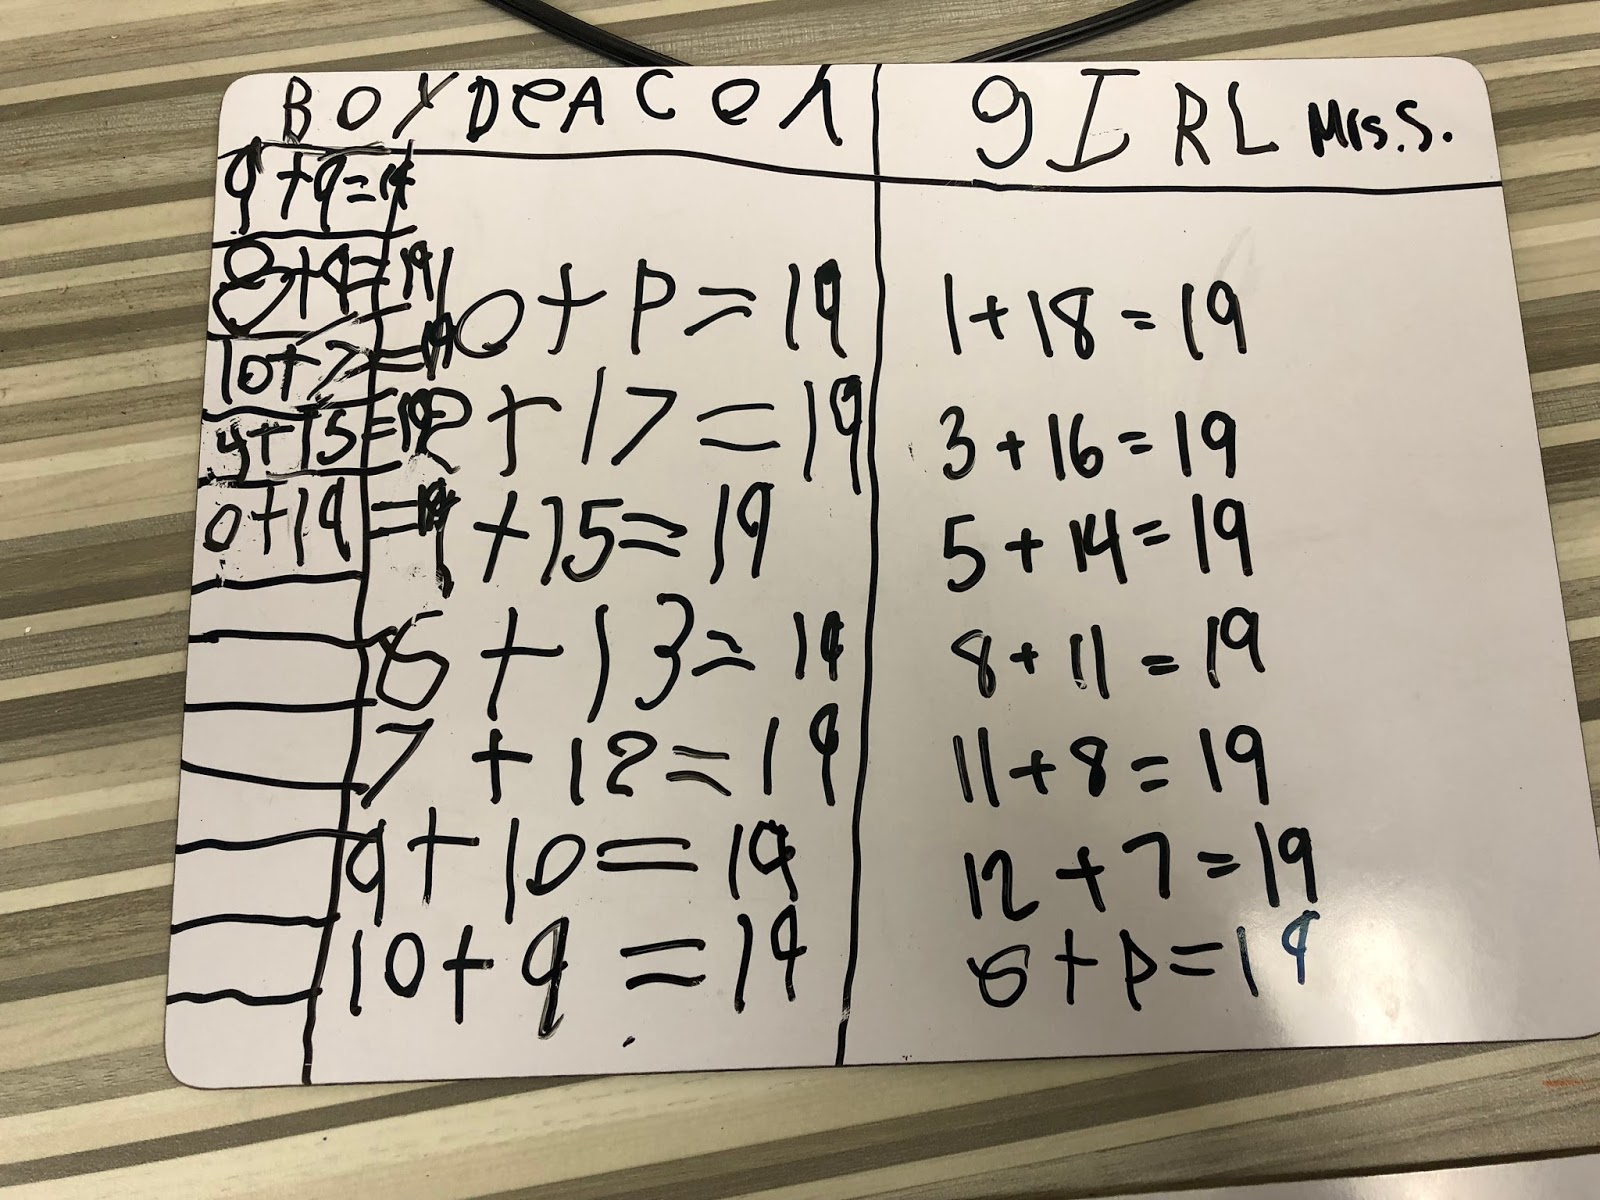 BOY DeACON
gIRL Mrs.S.
9+9=19
8+9=19
10+7=19
4+15=19
0+19=19
10+P=19
2+17=19
4+15=19
6+13=19
7+12=19
9+10=19
10+9=19
1+18=19
3+16=19
5+14=19
8+11=19
11+8=19
12+7=19
6+P=19